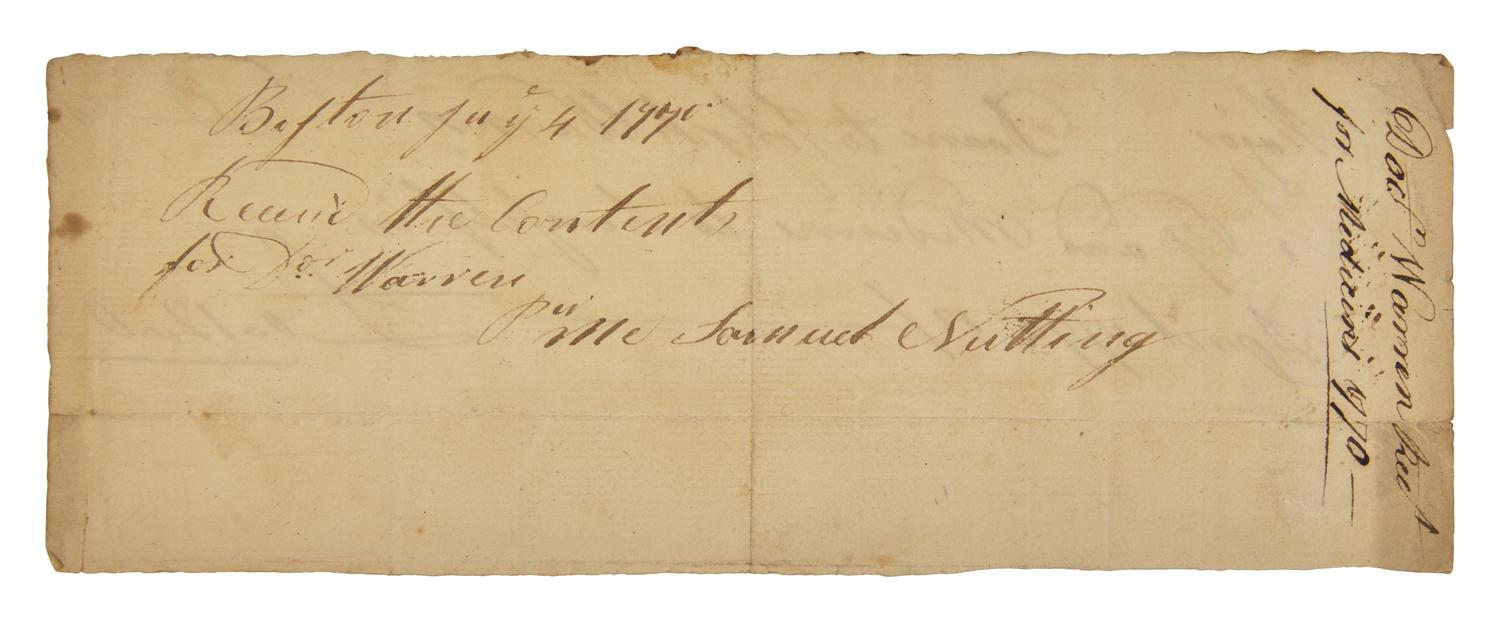 Boston July 4 1770
Receiv'd the Contents
for Dor Warren
Pr Me Samuel Nutting
Doct Warren Rect
for Midicins 1770